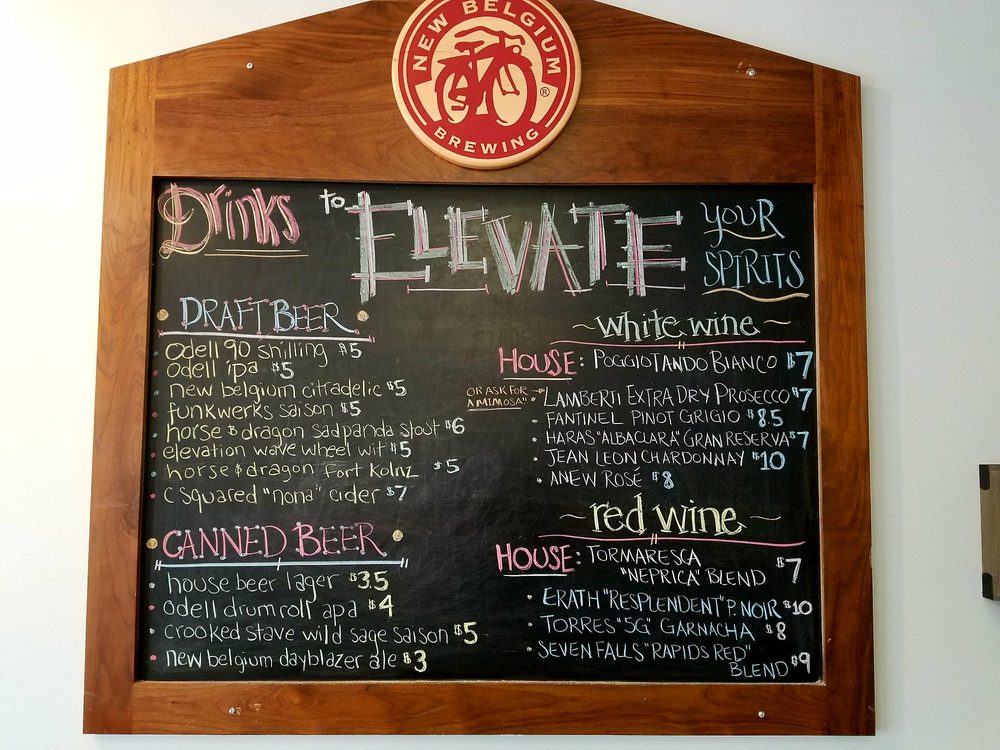 NEW BELGIUM
®
BREWING
Drinks to ELEVATE YOUR SPIRITS
DRAFT BEER
odell 90 shilling $5
odell ipa $5
new belgium citradelic $5
funkwerks saison $5
horse & dragon sad panda stout $6
elevation wave wheel wit $5
horse & dragon Fort Kolnz $5
C Squared "nona" cider $7
CANNED BEER
house beer lager $3.5
odell drumroll apa $4
crooked stave wild sage saison $5
new belgium dayblazer ale $3
~white wine~
HOUSE: POGGIOTANDO BIANCO $7
OR ASK FOR
A MIMOSA"
LAMBERTI EXTRA DRY PROSECCO $7
FANTINEL PINOT GRIGIO $8.5
HARAS "ALBACLARA" GRAN RESERVA $7
JEAN LEON CHARDONNAY $10
ANEW ROSÉ $8
~red wine~
HOUSE: TORMARESCA
"NEPRICA" BLEND $7
ERATH "RESPLENDENT" P. NOIR $10
TORRES "5G" GARNACHA $8
SEVEN FALLS "RAPIDS RED"
BLEND $9